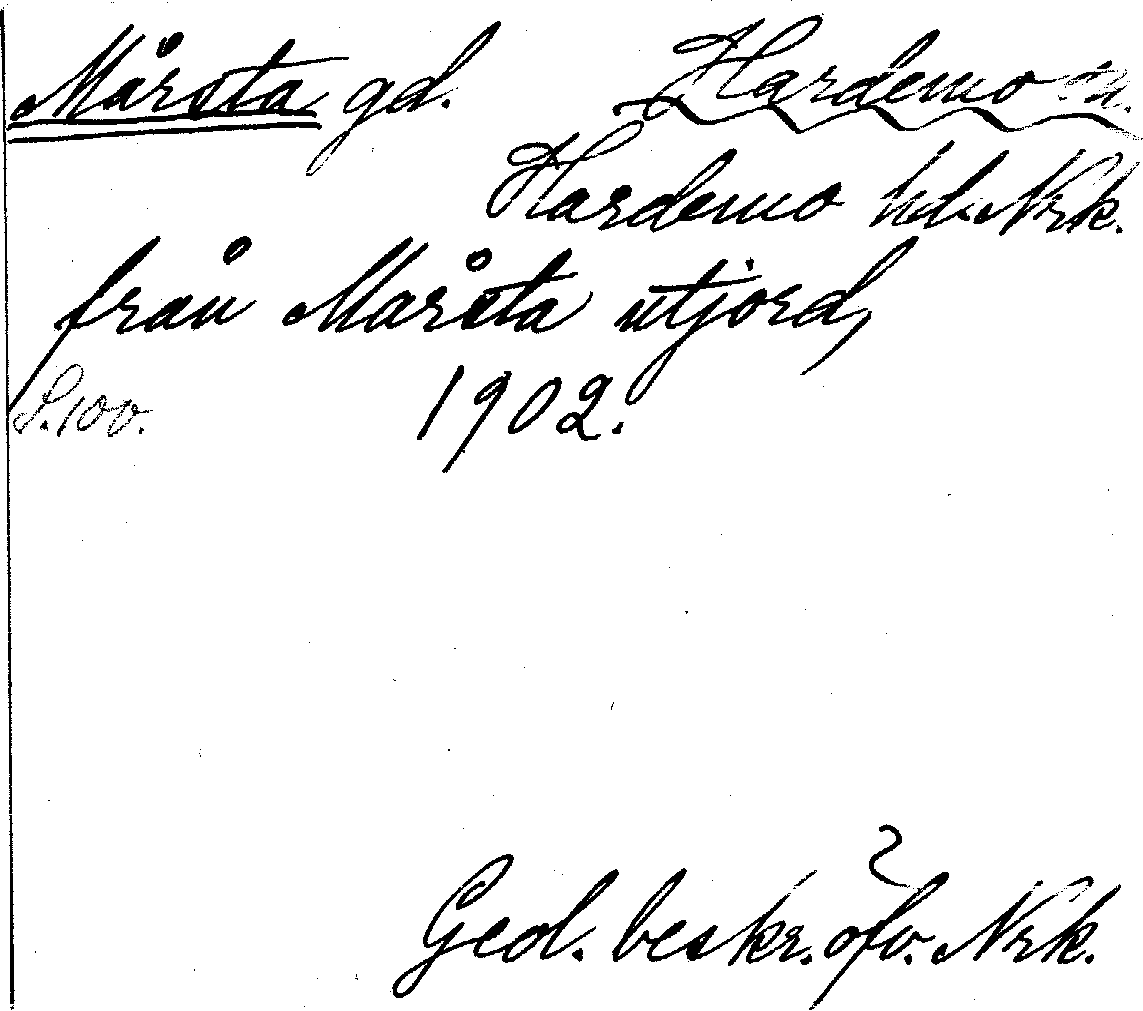 Mårsta gd. Hardemo sn.
Hardemo hd. Nrk.
från Mårsta utjord,
S. 100. 1902.
Geol. beskr. öfv. Nrk.